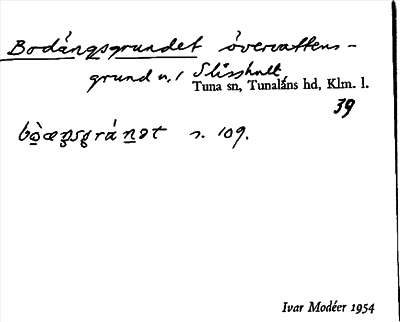 Bodängsgrundet övervattens-
grund n. / Slisshult
Tuna sn, Tunaläns hd, Klm. l.
39
s. 109.
Ivar Modéer 1954